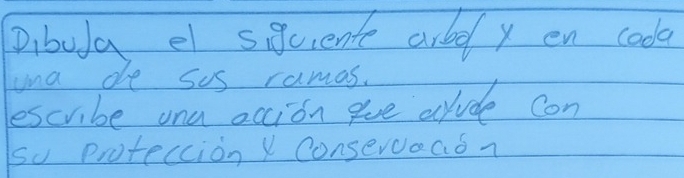 Dibuja el siguiente arbol y en cada
una de sus ramas.
escribe una acción que ayude con
su protección y conservación